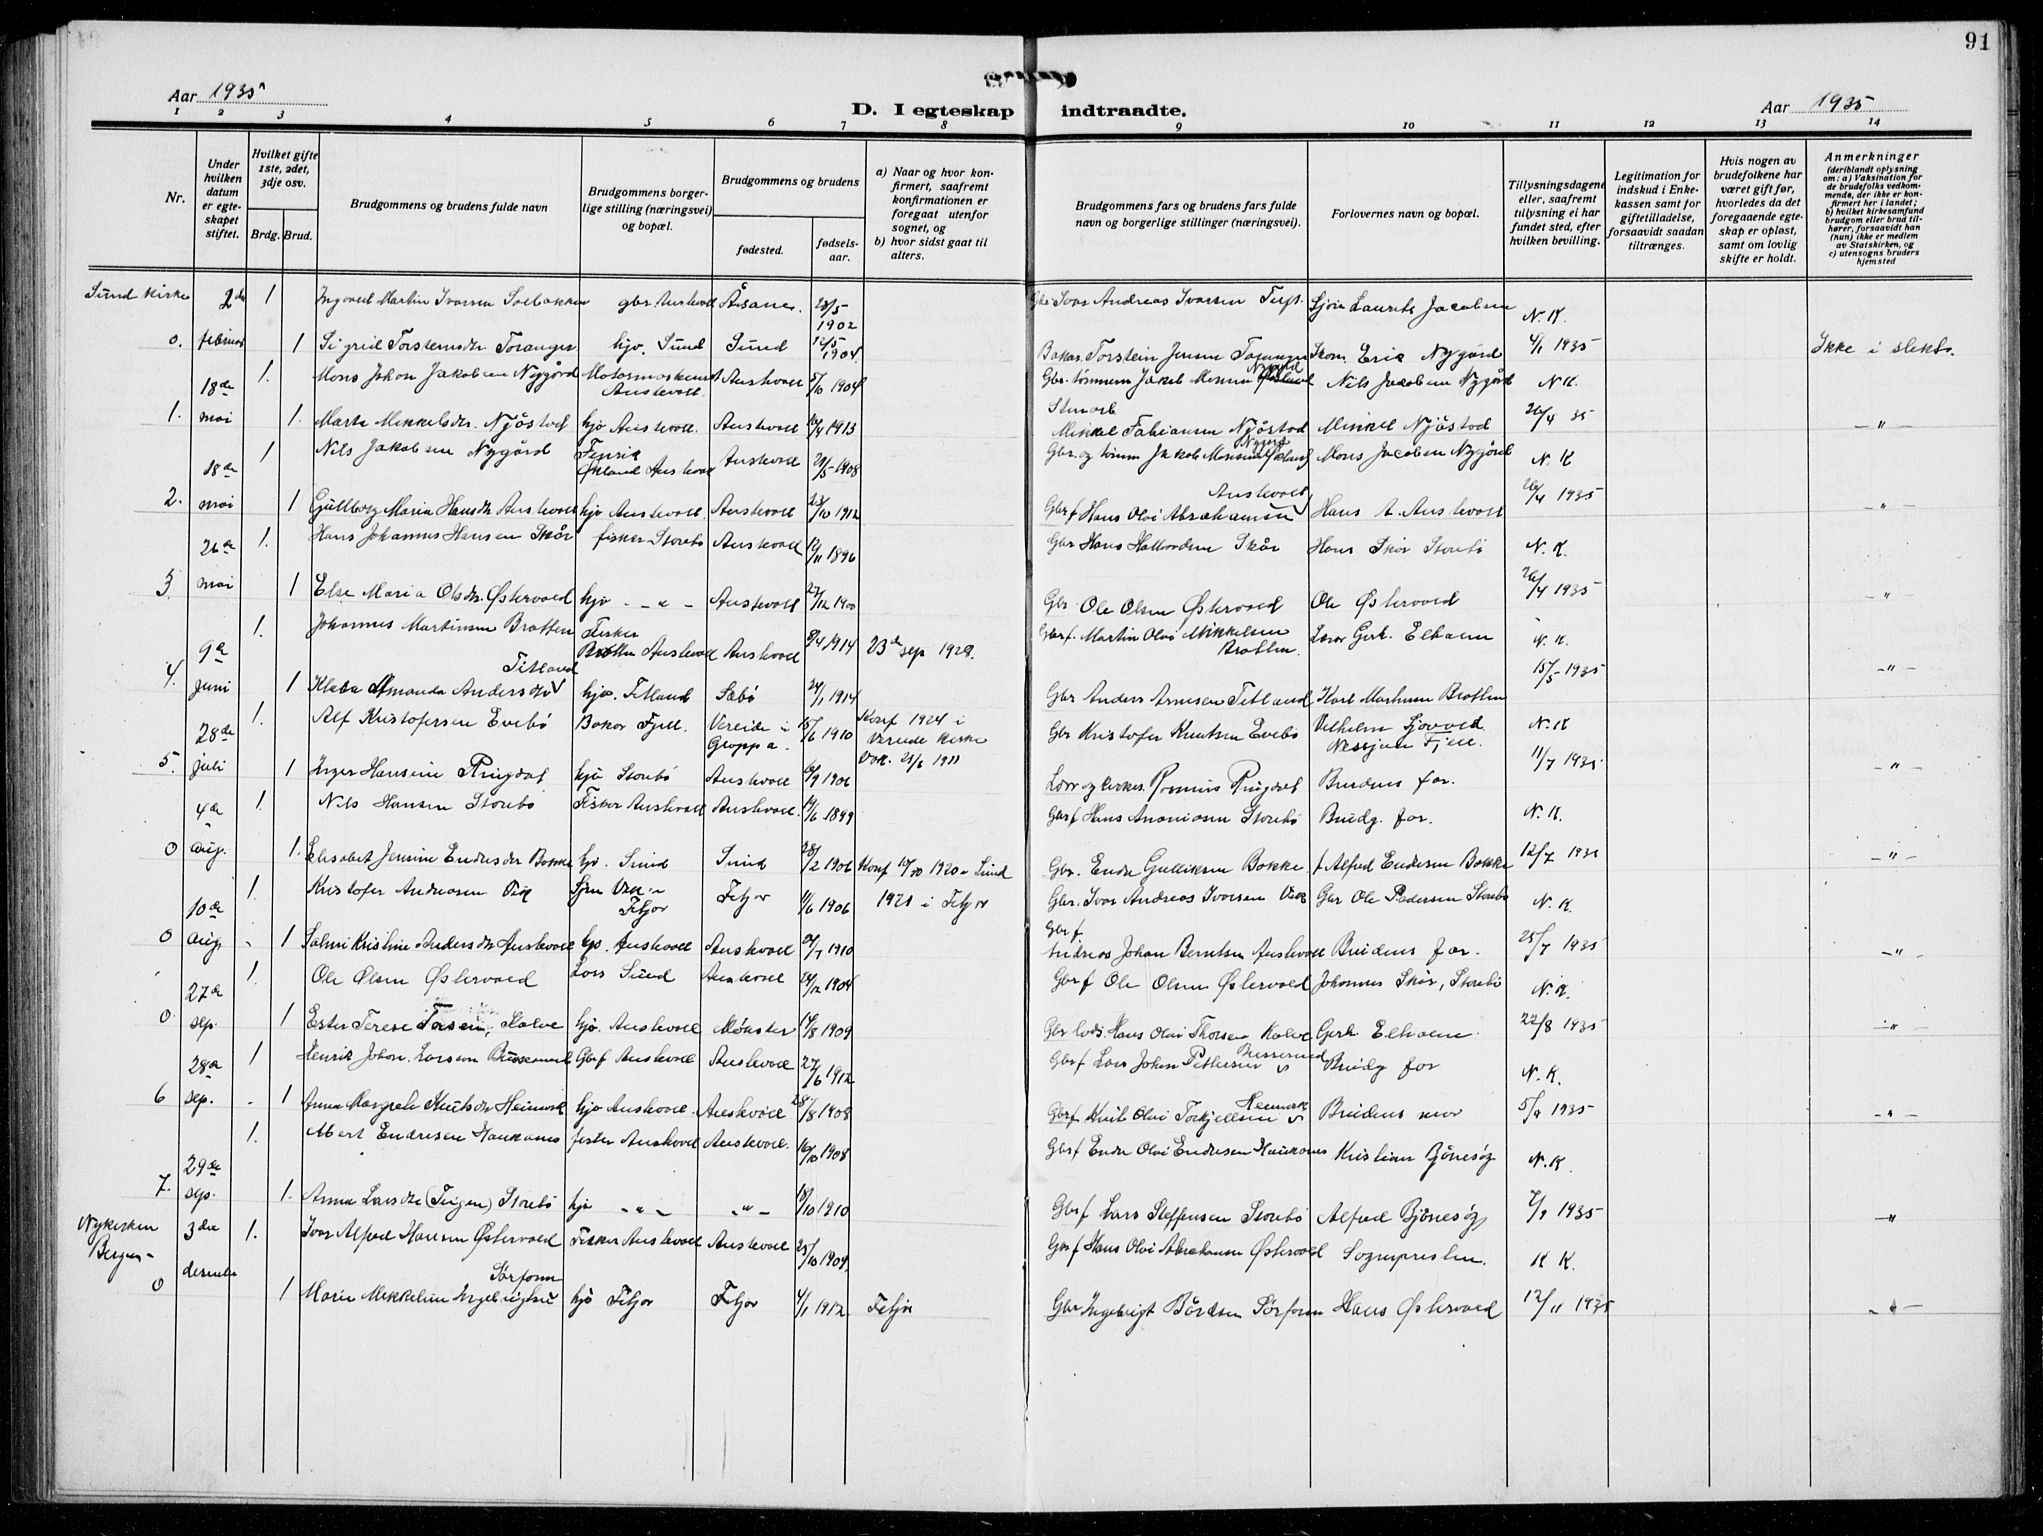 91
Aar 1935
D. I egteskap indtraadte.
Aar 1935
1 2 3 4 5 6 7 8 9 10 11 12 13 14
Nr.
Under hvilken datum er egteskapet stiftet.
Hvilket gifte 1ste, 2det, 3dje osv.
Brdg. Brud.
Brudgommens og brudens fulde navn
Brudgommens borgerlige stilling (næringsvei) og bopæl.
Brudgommens og brudens
fødested.
fødselsaar.
a) Naar og hvor konfirmert, saafremt konfirmationen er foregaat utenfor sognet, og
b) hvor sidst gaat til alters.
Brudgommens fars og brudens fars fulde navn og borgerlige stillinger (næringsvei).
Forlovernes navn og bopæl.
Tillysningsdagene eller, saafremt tillysning ei har fundet sted, efter hvilken bevilling.
Legitimation for indskud i Enkekassen samt for giftetilladelse, forsaavidt saadan tiltrænges.
Hvis nogen av brudefolkene har været gift før, hvorledes da det foregaaende egteskap er opløst, samt om lovlig skifte er holdt.
Anmerkninger (deriblandt oplysning om: a) Vaksination for de brudefolks vedkommende, der ikke er konfirmert her i landet; b) hvilket kirkesamfund brudgom eller brud tilhører, forsaavidt han (hun) ikke er medlem av Statskirken, og c) utensogns bruders hjemsted
Sund kirke 2de 1 Ingvald Martin Ivarsen Solbakken gbr. Austevoll Åsane. 28/5 1902 Gbr Ivar Andreas Ivarsen Lauritz Jacobsen N.K.
0. februar 1 Sigrid Torsteinsdtr Toranger hjv. Sund Sund 12/5 1904 Torstein Jensen Toranger Eric Nygård 4/1 1935 Ikke i slekt.
18de 1. Mons Johan Jakobsen Nygård Austevoll Austevoll 5/10 1904 Gbr. tømmerm Jakob Monsen Nygård Nils Jacobsen Nygård N K.
1. mai 1. Marta Mikkelsdtr. Njåstad hjv Austevoll. Austevoll 16/4 1913 Mikkel Fabiansen Njåstad Mikkel Njåstad 26/4 35 — " —
18de 1 Nils Jakobsen Nygård Økland Austevoll Austevoll 29/5 1908 Gbr. og tømm Jakob Monsen Nygård Mons Jacobsen Nygård N. K
2. mai 1 Gullborg Maria Hansdtr Austevoll hjv Austevoll. Austevoll 23/10 1912 Gbrf Hans Olai Abrahamsen Austevoll Hans A. Austevoll 26/4 1935 — " —
26de 1. Hans Johannes Hansen Skår fisker Storebø Austevoll 12/11 1896 Gbr Hans Halvordsen Skår Hans Skår Storebø N. K.
3. mai 1 Else Maria Olsdtr. Østervold hjv — " — Austevoll 27/12 1900 Gbr. Ole Olsen Østervold Ole Østervold 26/4 1935 — " —
9de 1. Johannes Martinsen Bratten Fisker Bratten Austevoll Austevoll 8/4 1914 23de sep 1929. Gbrf. Martin Olai Mikkelsen Bratten. Lærer Gerh. Elholm N. K.
4. juni 1 Klara Amanda Andersdtr Titland hjv. Titland Sæbø 24/1 1914 Gbr Anders Arnesen Titland Karl Martinsen Bratten 15/5 1935 — " —
28de 1. Alf Kristofersen Evebø Baker Fjell. Vereide i Gloppen. 15/6 1910 Konf 1924 i Vereide kirke Vak. 21/6 1911 Gbr Kristofer Knutsen Evebø Vilhelm N. K
5. juli 1 Inger Hansine Ringdal hjv Storebø Austevoll 8/9 1906 Lærer og kirkes. Rasmus Ringdal Brudens far. 11/7 1935 — " —
4de 1. Nils Hansen Storebø Fisker Austevoll Austevoll. 14/6 1899 Gbrf Hans Ananiasen Storebø Brudg. far. N. K.
0 aug. 1. Elisabet Jensine Endresdtr Bakke hjv. Sund Sund 28/2 1906 Konf 1920 i Sund Gbr. Endre Gulliksen Bakke f Alfred Endresen Bakke 12/7 1935 — " —
10de 1. Kristofer Andreasen Vik Fitjar Fitjar 11/6 1906 1921 i Fitjar Gbr. Ivar Andreas Ivarsen Vik Gbr Ole Pedersen Storebø N. K.
0 aug 1 Salmi Kristine Andersdtr Austevoll hjv. Austevoll Austevoll 24/7 1910 Gbrf Andreas Johan Berntsen Austevoll Brudens far. 25/7 1935 — " —
27de 1. Ole Olsen Østervold Los Sund Austevoll 24/12 1904 Gbrf Ole Olsen Østervold Johannes Skår, Storebø N. K.
0 sep. 1 Ester Terese Torsen, Kalve hjv. Austevoll Møkster 14/8 1909 Gbr lods. Hans Olai Thorsen Kalve Gerh Elholm. 22/8 1935 — " —
28de 1 Henrik Johan Larsen Bussesund Gbrf Austevoll Austevoll 27/6 1912 Gbrf Lars Johan Pettersen Bussesund Brudg far N. K.
6 sep. 1 Anna Margrete Knutsdtr Heimark hjv Austevoll. Austevoll 28/8 1908 Gbrf Knut Olai Torkjellsen Heimark Brudens mor 5/9 1935 — " —
29de 1. Albert Endresen Haukanes fisker Austevoll Austevoll. 16/10 1908 Gbrf Endre Olai Endresen Haukanes Kristian Bjånesøy N. K.
7. sep. 1. Anna Larsdtr (Teigen) Storebø hjv — " — — " — 18/10 1910 Gbrf Lars Steffensen Storebø Alfred Bjånesøy 7/9 1935 — " —
Nykirken Bergen 3die 1. Ivar Alfred Hansen Østervold Fisker Austevoll Austevoll 25/10 1909. Gbrf Hans Olai Abrahamsen Østervold Sognepresten. K K.
0 desember 1 Marie Mikkeline Ingebrigtsd Sørfonn hjv Fitjar Fitjar 4/1 1912 Fitjar Gbr Ingebrigt Bårdsen Sørfonn Hans Østervold 12/11 1935 — " —